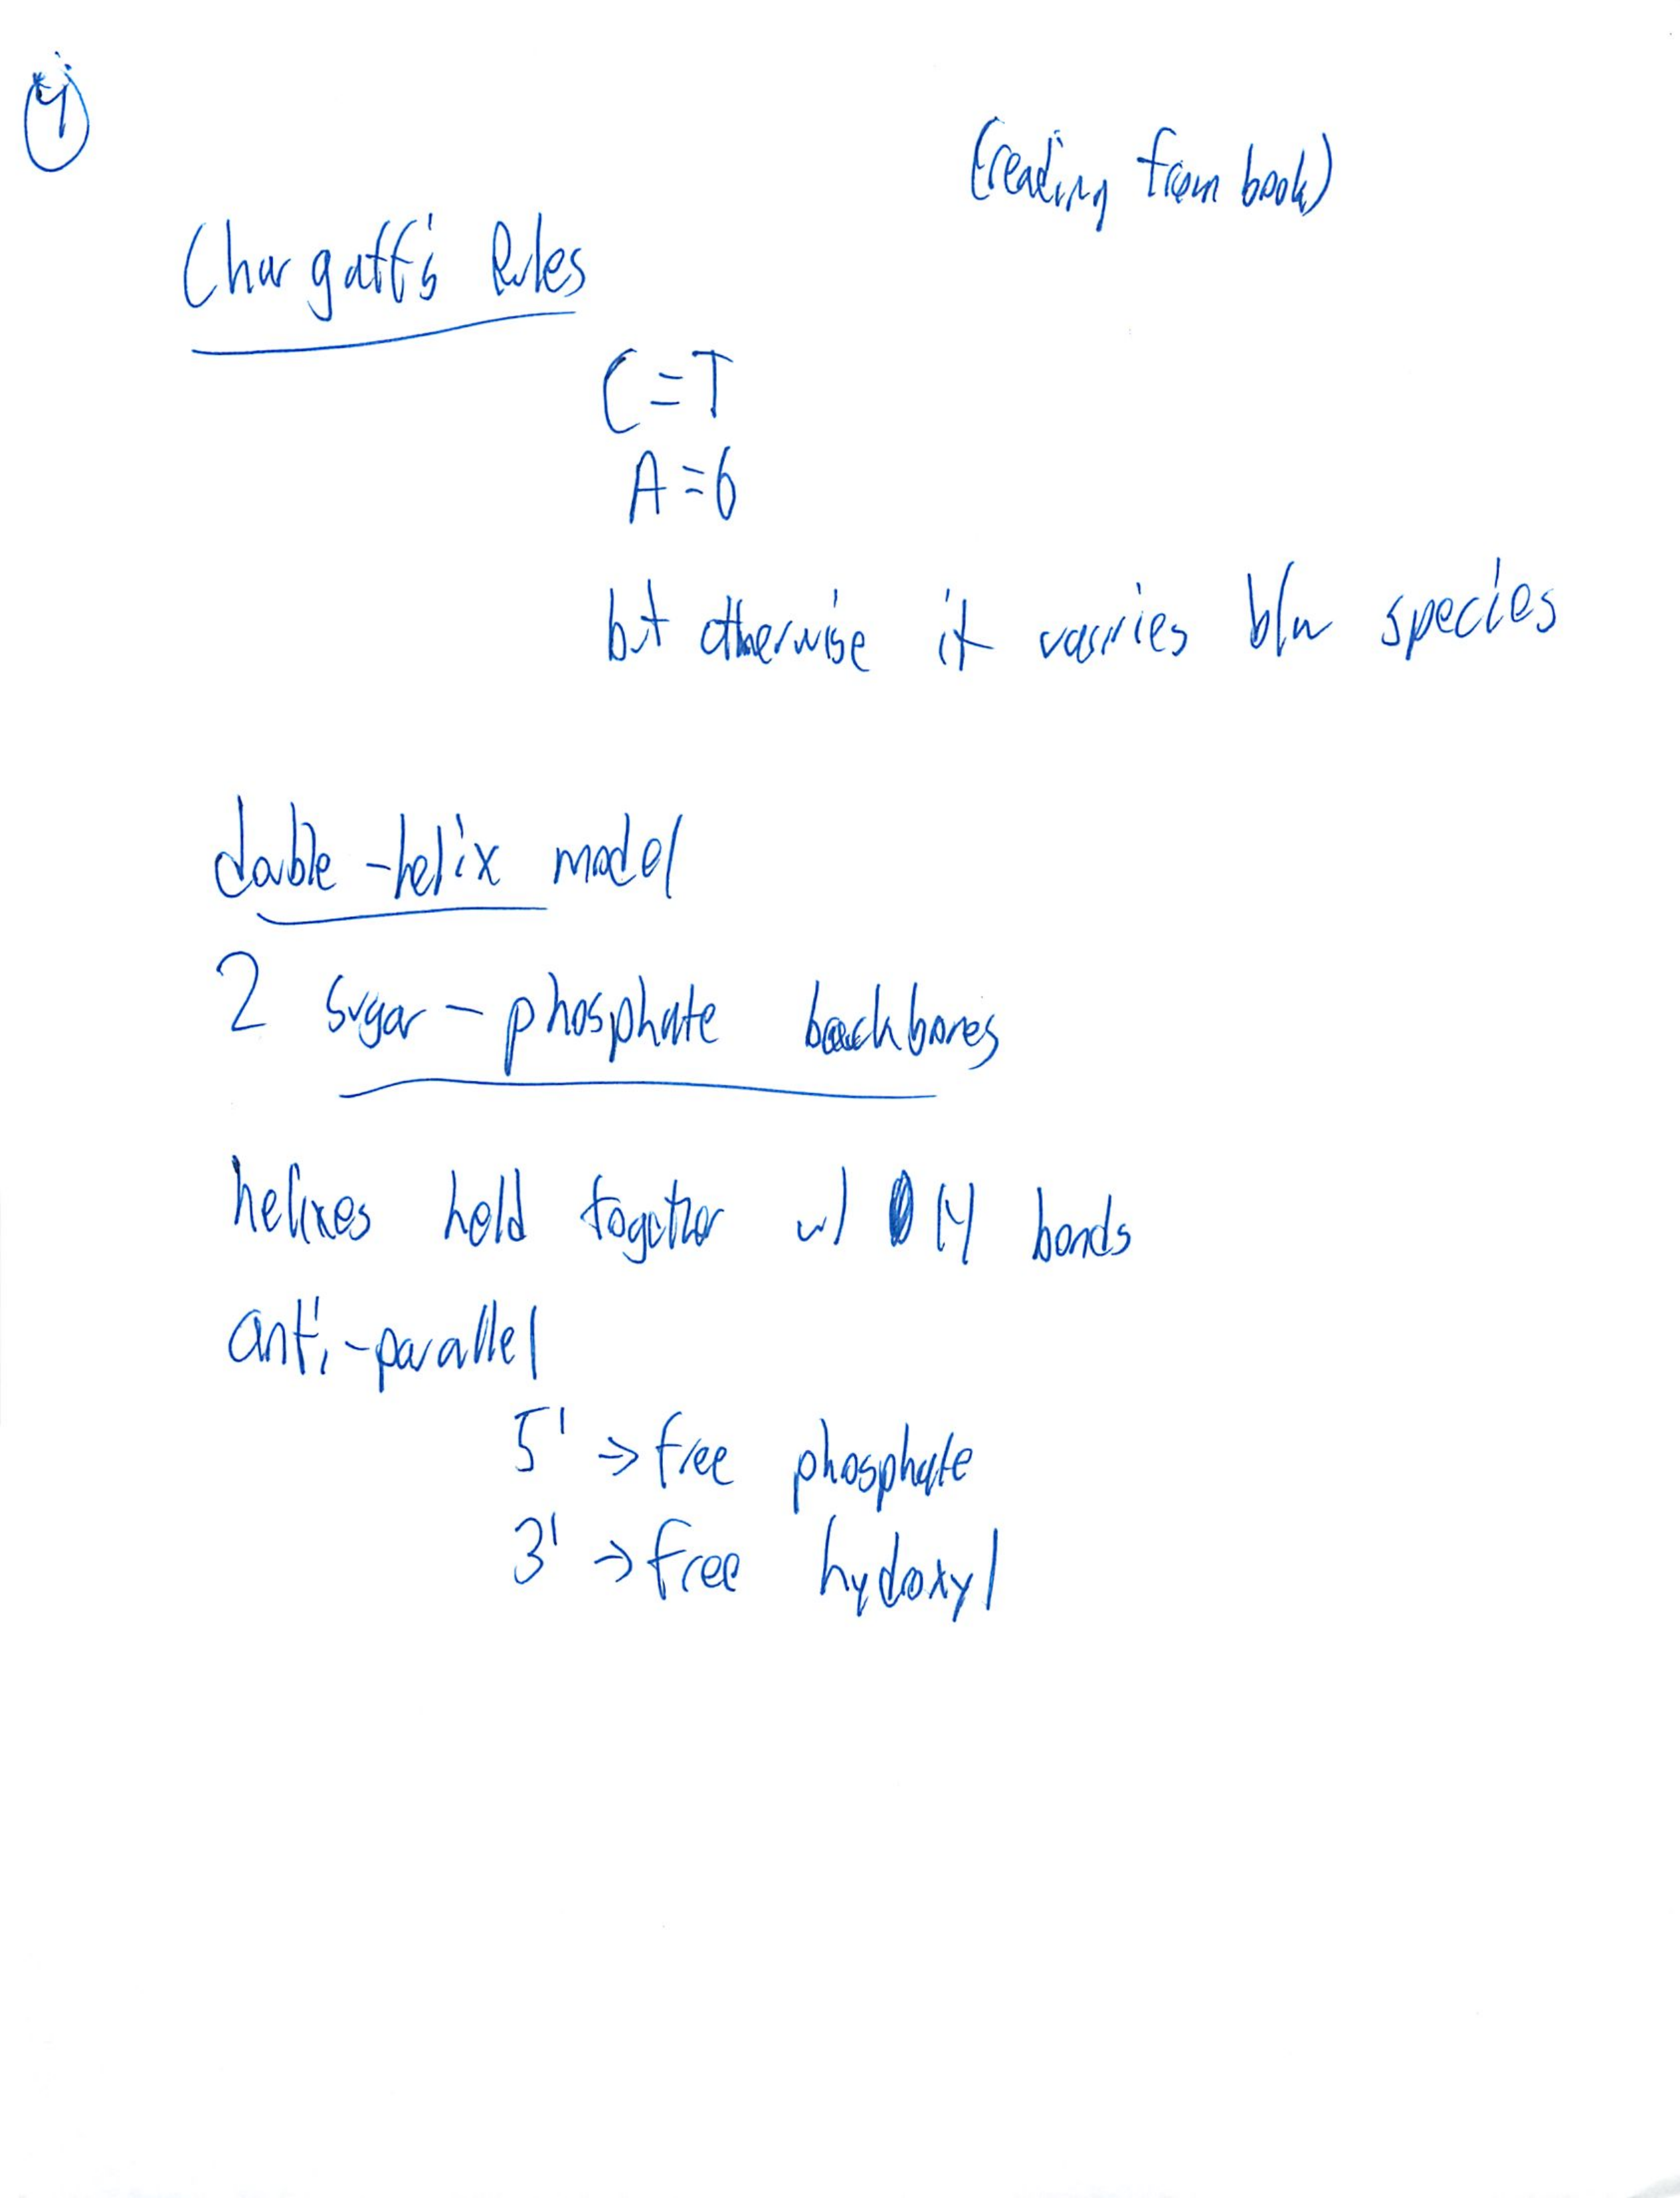 4
(reading from book)
Chargaff's Rules
C=T
A=G
but otherwise it varries b/w species
double-helix model
2 sugar-phosphate backbones
helixes held together w/ H bonds
anti-parallel
5' → free phosphate
3' → free hydoxyl